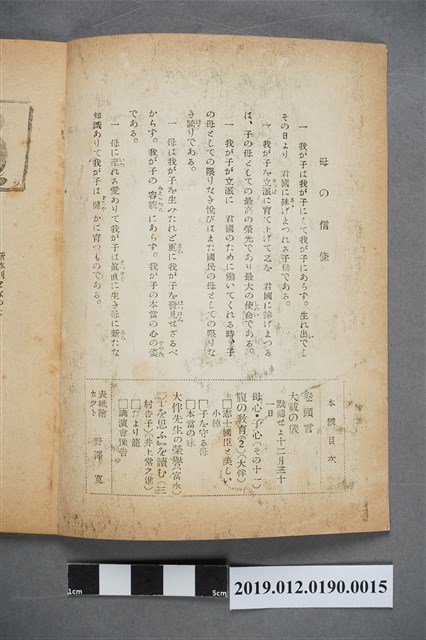 母の信條
一 我が子は我が子にして我が子にあらず。生れ出でし
その日より 君國に捧げまつれる子寶である。
一 我が子を立派に育て上げて之を 君國に捧げまつる
は、子の母としての最高の榮光であり最大の使命である。
一 我が子が立派に 君國のために働いてくれる時、子
の母としての限りなき悅びはまた國民の母としての限りな
き誇りである。
一 母は我が子を生みたれど更に我が子を發見せざるべ
からず。我が子の容貌にあらず。我が子の本當の心の姿
である。
一 母に正れる愛ありて我が子は眞直に生き母に新たな
知識ありて我が子は健かに育つものである。
本號目次
卷頭言
大祓の儀
默禱せよ十二月三十
一日
母心・子心(その十一)
腹の教育(2)(大伴)
□志士國臣と美しい
小樟
□子を守る母
□本當の味
大伴先生の榮譽(富永)
『子を思ふ』を讀む(三
村杏子)(井上常之進)
□たより籠
□講演會豫告
表紙繪
カット 野澤 寬
1cm
5cm
2019.012.0190.0015